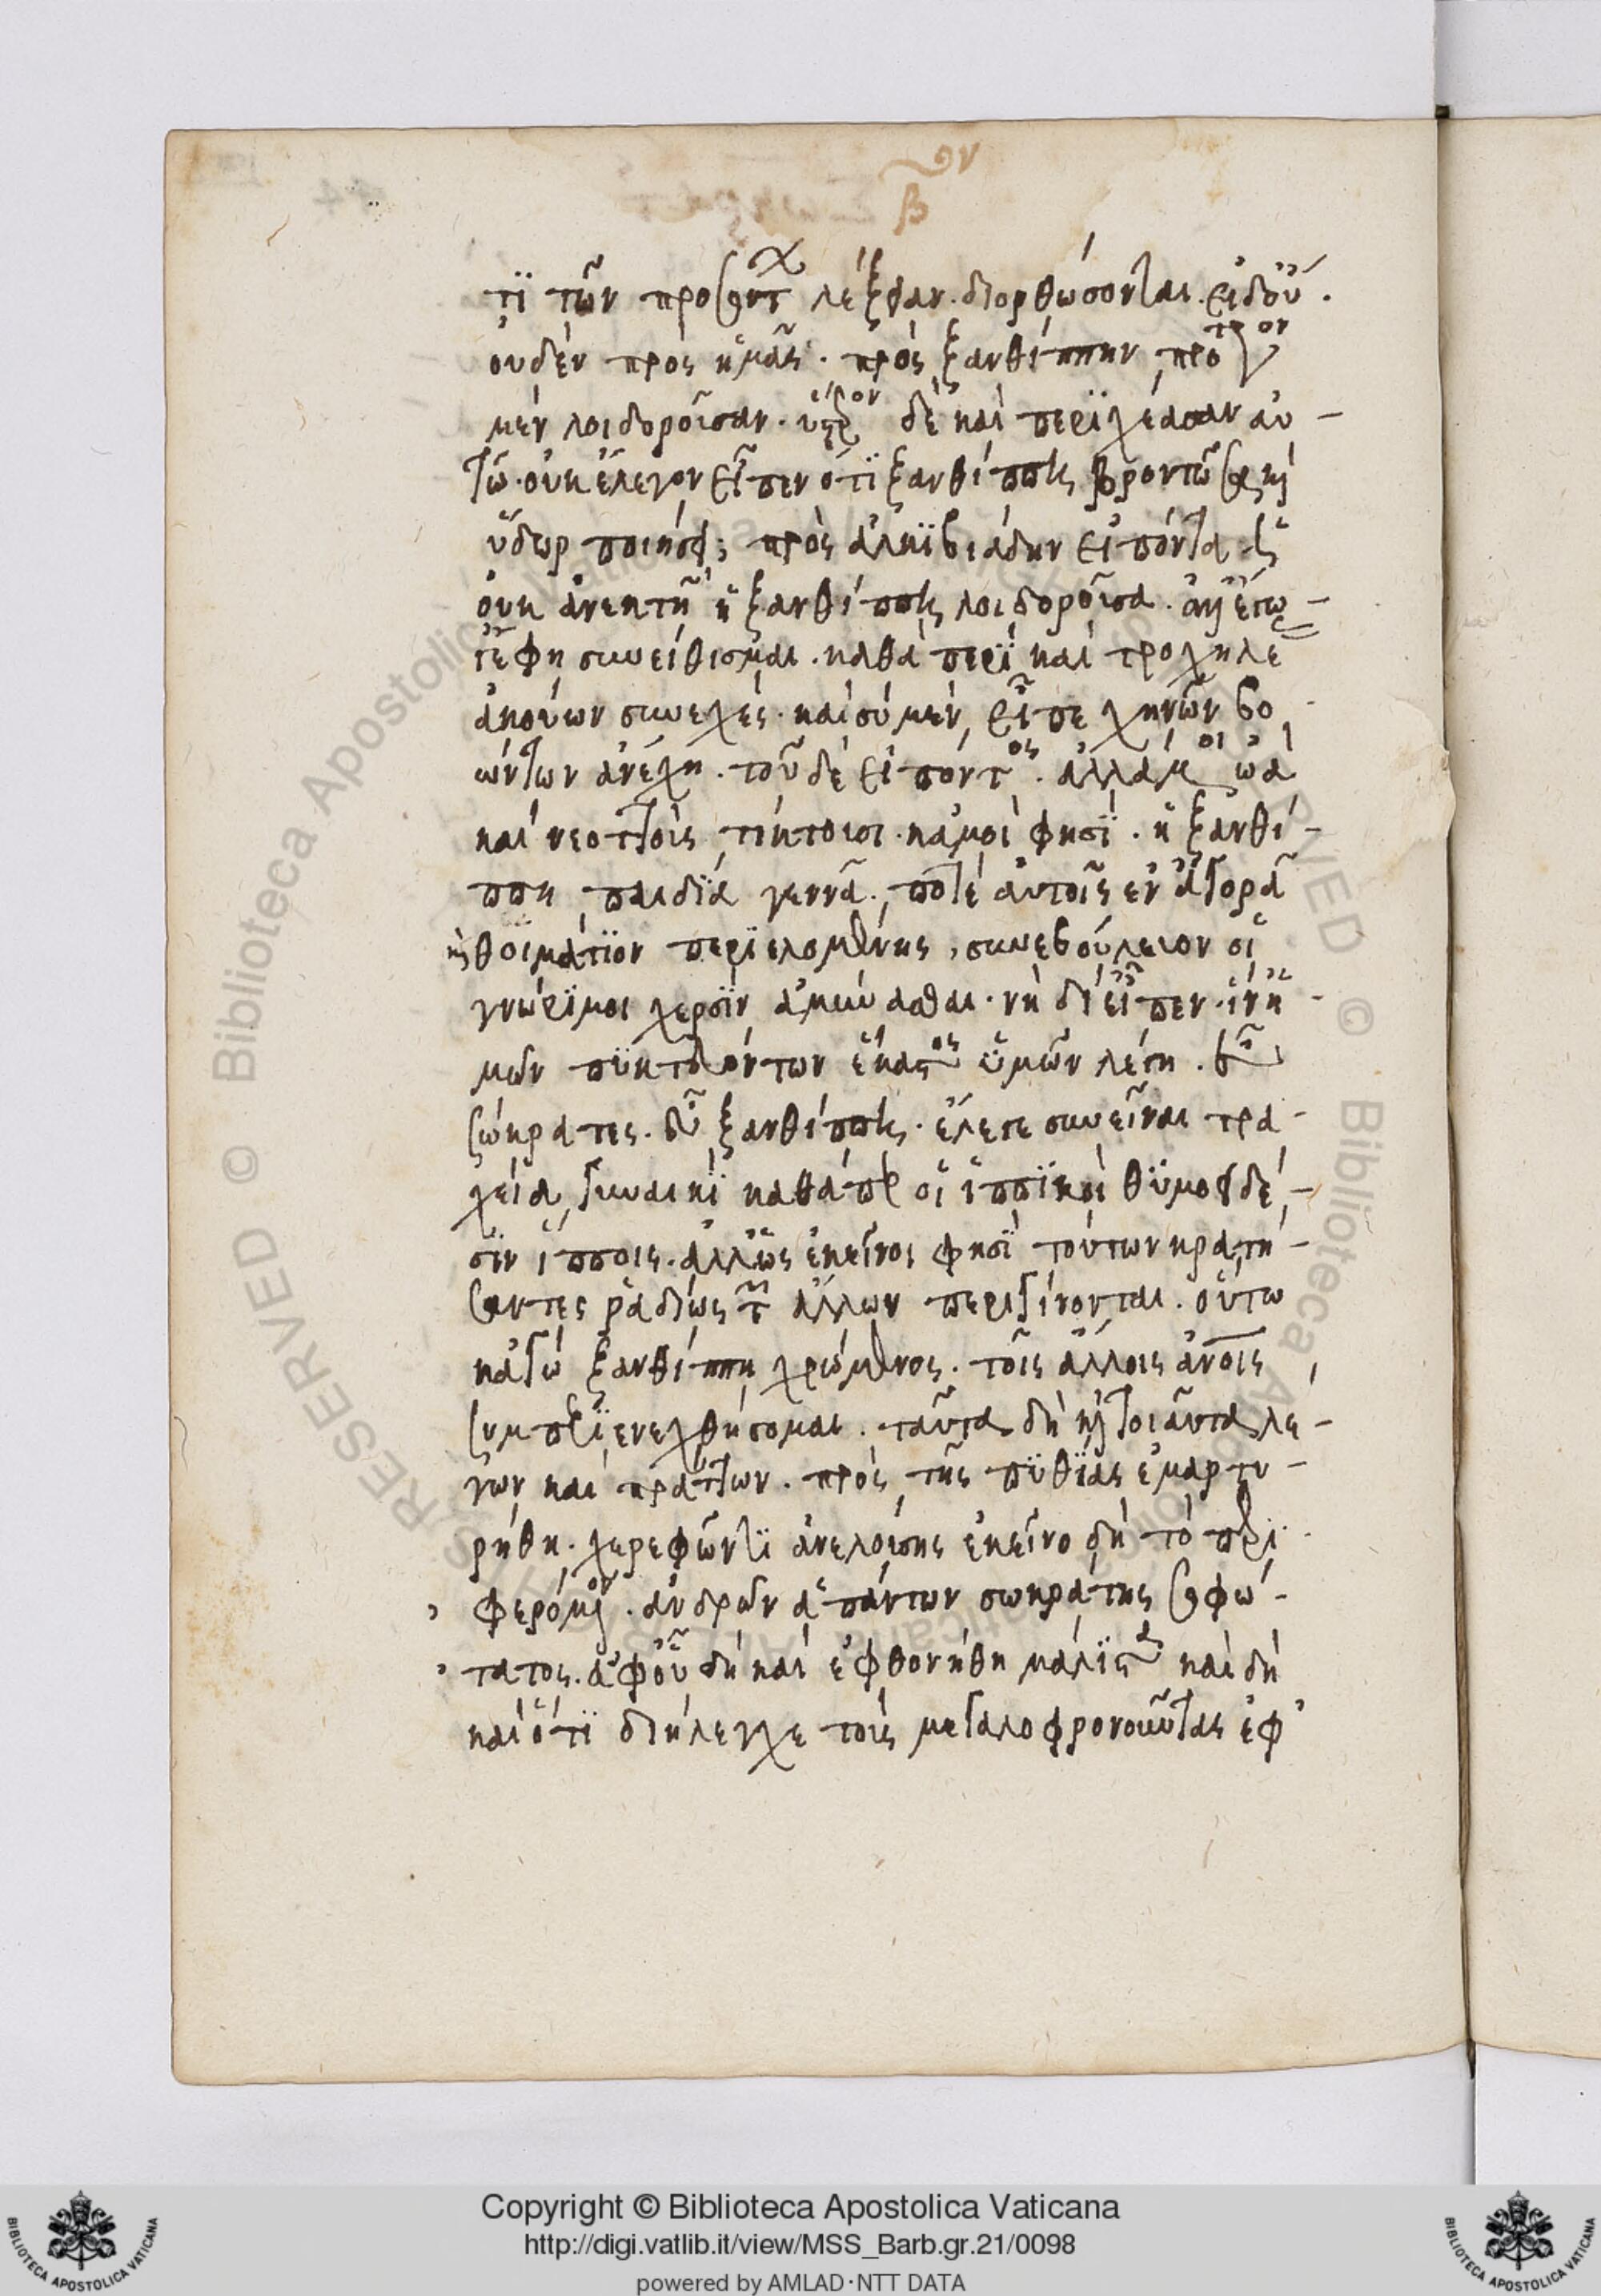 τϊ τῶν προσόντ λέξειαν. διορθώσονται. εἰ δ' οὔ.
οὐδὲν πρὸς ἡμᾶς. πρὸς ξανθίππην πρότερον
μὲν λοιδοροῦσαν. ὕστερον δὲ καὶ περϊχέασαν αὐ-
τῶ. οὐκ ἔλεγον εἶπεν ὅτϊ ξανθίππη βροντῶσα καὶ
ὕδωρ ποιήσει; πρὸς ἀλκϊβιάδην εἰπόντα ὡς
οὐκ ἀνεκτὴ ἡ ξανθίππη λοιδοροῦσα. ἀλλ' ἔγω-
γ' ἔφη συνείθισμαι. καθὰ περεὶ καὶ τροχηλε
ἀκούων συνεχές. καὶ σὺ μὲν εἶπε χηνῶν βο
ώντων ἀνέχη. τοῦ δὲ εἰπόντος. ἀλλά μοι ὠὰ
καὶ νεοττοὺς τίκτουσι. κἀμοὶ φησϊ. ἡ ξανθί-
ππη παιδία γεννᾶ. ποτὲ αὐτοῖς ἐν ἀγορᾶ
καὶ θοἰμάτϊον περϊελομένης, συνεβούλευον οἱ
γνώρϊμοι χερσὶν ἀμύνασθαι. νὴ δί' εἶπεν. ἵν' ἡ-
μῶν πϋκτευόντων ἕκαστος ὑμῶν λέγη. εὖ
σώκρατες. εὖ ξανθίππη. ἔλεγε συνεῖναι τρα-
χεία γυναικὶ καθάπερ οἱ ἱππϊκοὶ θϋμοειδέ-
σϊν ἵπποις. ἀλλ' ὡς ἐκεῖνοι φησϊ τούτων κρατή-
σαντες ῥαδίως τῶν ἄλλων περιγίνονται. οὕτω
κἀγὼ ξανθίππη χρώμενος. τοῖς ἄλλοις ἀνοις
συμπεριενεχθήσομαι. ταῦτα δὴ καὶ τοιαῦτα λέ-
γων καὶ πράττων. πρὸς τῆς πϋθΐας ἐμαρτυ-
ρήθη. χερεφῶντϊ ἀνελούσης ἐκεῖνο δὴ τὸ περι
φερόμενον. ἀνδρῶν ἁπάντων σωκράτης σοφώ-
τατος. ἀφ' οὗ δὴ καὶ ἐφθονήθη μάλϊστα καὶ δὴ
καὶ ὅτϊ διήλεγχε τοὺς μεγαλοφρονοῦντας ἐφ'
Copyright © Biblioteca Apostolica Vaticana
http://digi.vatlib.it/view/MSS_Barb.gr.21/0098
powered by AMLAD·NTT DATA